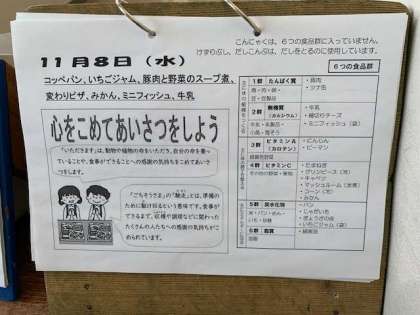 こんにゃくは、6つの食品群に入っていません。
けずりぶし、だしこんぶは、だしをとるのに使用しています。
11月8日（水）
コッペパン、いちごジャム、豚肉と野菜のスープ煮、
変わりピザ、みかん、ミニフィッシュ、牛乳
心をこめてあいさつをしよう
「いただきます」は、動物や植物の命をいただき、自分の命を養っ
ていることや、食事ができることへの感謝の気持ちをこめてあいさ
つをします。
「ごちそうさま」の「馳走」とは、準備の
ために駆け回るという意味です。食事が
できるまで、収穫や調理などに関わった
たくさんの人たちへの感謝の気持ちがこ
められています。
6つの食品群
1群 たんぱく質
・豚肉
・ツナ缶
2群 無機質
（カルシウム）
・牛乳
・細切りチーズ
・ミニフィッシュ（袋）
3群 ビタミンA
（カロテン）
・にんじん
・ピーマン
緑黄色野菜
4群 ビタミンC
・たまねぎ
・グリンピース（冷）
・キャベツ
・マッシュルーム（水煮）
・コーン（冷）
・みかん
5群 炭水化物
・パン
・じゃがいも
・ぎょうざの皮
・いちごジャム（袋）
6群 脂質